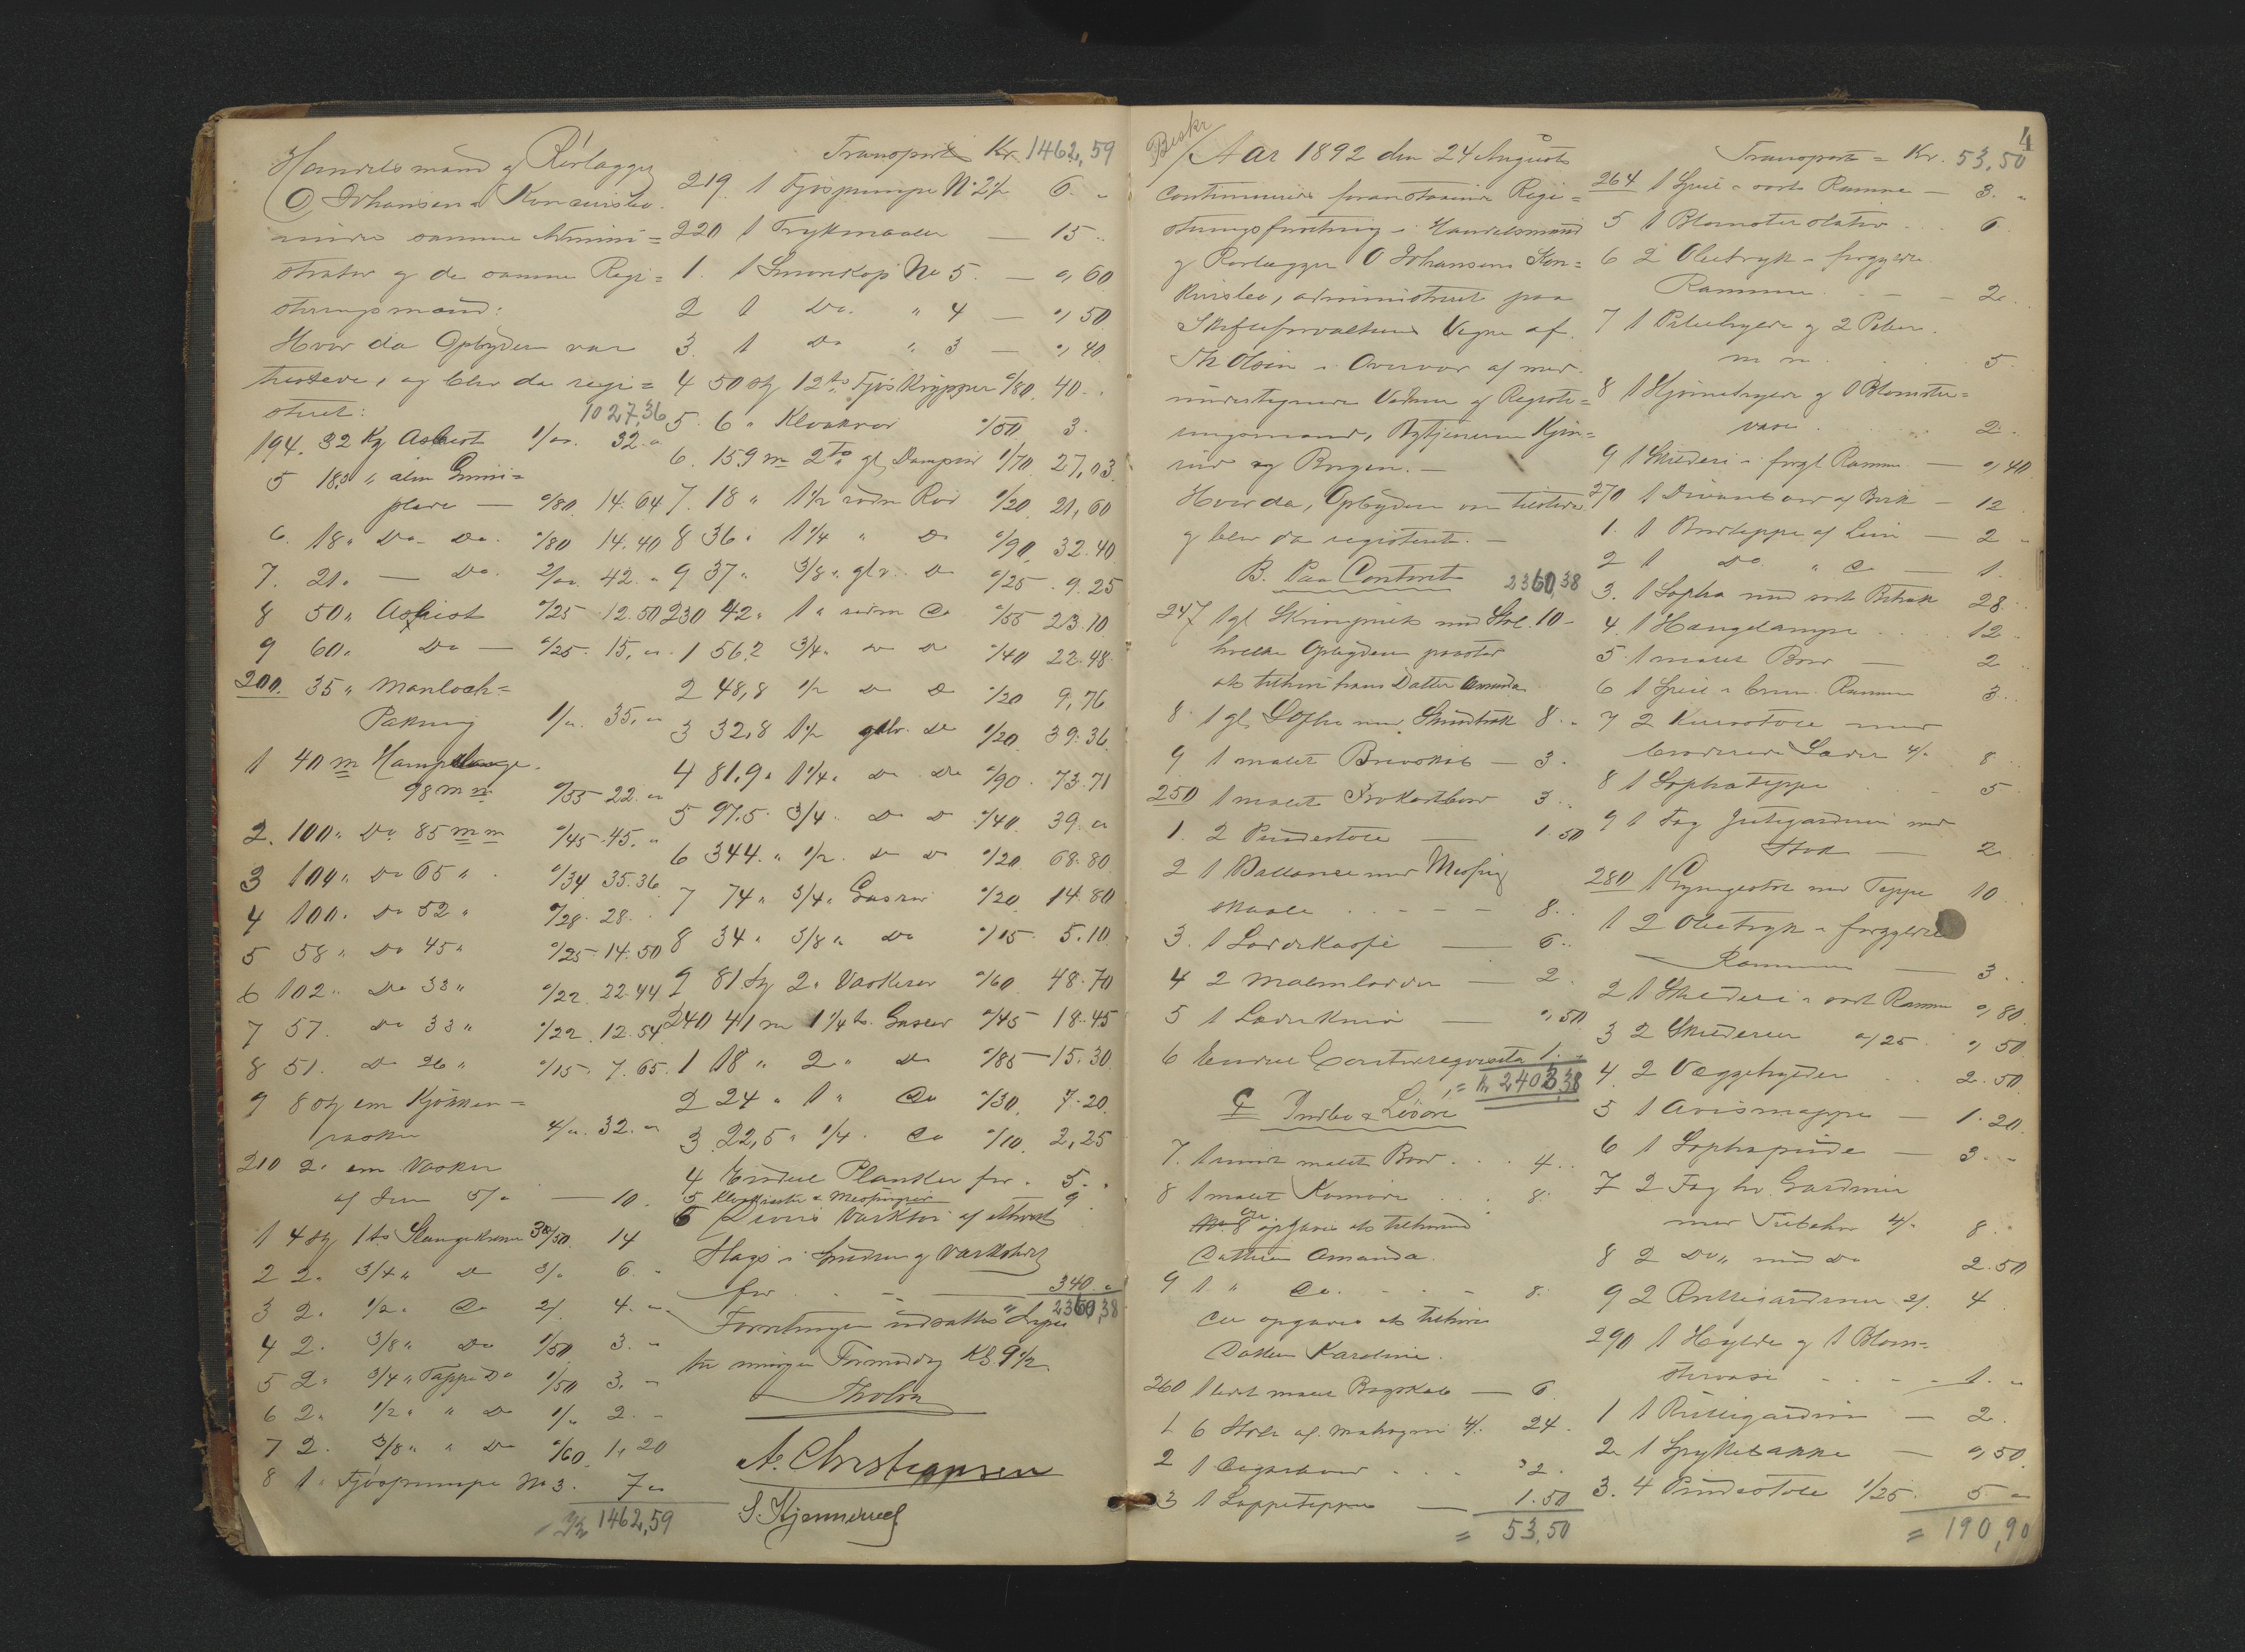 Handelsmand og Rørlægger
O Johansens Konkursbo
under samme Admini=
strator og de samme Regi=
streringsmænd:
Hvor da Opbyderen var
tilstede, og blev da regi=
streret:
1027,36
194. 32 Kg Asbest 1/00. 32.00
5 18,3 " alm Gummi=
plade — 0/80. 14.64
6. 18 " Do Do. 0/80 14.40
7. 21 " — Do. 2/00. 42. "
8 50 " Asbest 0/25 12.50
9 60 " Do — 0/25. 15,00
200. 35 " Manloch=
Pakning 1/00. 35,00
1 40 m Hampslange
98 mm 0/55 22.00
2. 100 " Do 85 mm 0/45. 45. "
3 104 " Do 65 " 0/34 35.36
4 100. Do 52 " 0/28. 28.
5 58 " Do 45 " 0/25 14.50
6 102 " Do 33 " 0/22. 22.44
7 57. Do 33 " 0/22. 12.54
8 51. Do 26 " 0/15. 7.65
9 8 stk em Kjøkken=
vasker 4/00. 32.00
210 2 " em Vasker
af Jern 5/00 — 10.
1 4 stk 1 to Slangekraner 3/50. 14
2 2 " 3/4 " Do 3/00 6. "
3 2 " 1/2 " Do 2/ 4. "
4 2. 3/8 " Do 1/50 3. "
5 2 " 3/4 " Tappe Do 1/50 3. "
6 2 " 1/2 " " Do 1/00 2. "
7 2. 3/8 " " Do 0/60. 1,20
8 1 " Fjøspumpe No 3. 7 "
Kr 1462,59
Transport Kr. 1462,59
219. 1 Fjøspumpe No 2 1/2 6. "
220 1 Trykmaaler — 15 "
1. 1 Smørekop No 5. — 0,60
2 1 Do. " 4 — 0,50
3. 1 Do " 3 — 0,40
4 50 stk 12 to Fjøskrypper 0/80. 40.
5. 6 " Kloakrør 0/50 3.
6. 159 m 2 to gl Damprør 0/70 27,03
7. 18 " 1 1/2 sorte Rør 1/20 21,60
8 36 " 1 1/4 " Do 0/90. 32.40
9 37 " 3/8 " glv. Do 0/25. 9.25
230 42 " 1 " sorte Do 0/55 23.10
1 56,2 3/4 " Do Do 0/40 22.48
2 48,8 1/2 Do Do 0/20 9,76
3 32,8 1 1/2 galv. Do 1/20 39.36
4 81,9 " 1 1/4 " Do Do 0/90. 73.71
5 97.5. 3/4. Do Do 0/40. 39.00
6 344. " 1/2. Do Do 0/20 68.80
7 74 " 3/4 " Gasrør 0/20 14.80
8 34 " 3/8 " Do 0/15. 5.10
9 81 stk 2 " Vaskerør 0/60 48.70
240 41 m 1 1/4 to. Gasrør 0/45 18.45
1 18 " 2 " Do 0/85 15.30
2 24 " 1 " Do 0/30. 7.20
3 22,5 " 1/4. Do 0/10. 2,25
4 Endel Planker for. 5. "
9
6 Divers Værktøi af ethvert
Slags i Smedien og Værksted
for — 340 "
2360,38
Forretningen udsattes derpaa
til imorgen Formiddag Kl 9 1/2.
Th Olsen
A. Christiansen
S. Kjennerud
Beskr
4
Aar 1892 den 24 August
continueredes foranstaaende Regi=
streringsforretning i Handelsmand
og Rørlægger O Johansens Kon=
kursbo, administreret paa
Skifteforvalterens Vegne af
Th Olsen i Overvær af med
undertegnede Vidner og Registre=
ringsmænd, Bytjenerne Kjen=
rud og Borgen. —
Hvor da, Opbyderen var tilstede
og blev da registreret. —
B. Paa Contoret 2360,38
247 1 gl Skrivepult med Stol. 10 -
hvilke Opbyderen paastod
at tilhøre hans Datter Amanda
8. 1 gl Sopha med Skindtræk 8. "
9 1 malet Brevskab — 3.
250 1 malet Frokostbord 3 "
1. 2 Pindestole — 1.50
2 1 Ballance med Messing
skaale . . - - - 8. "
3. 1 Lovekasse — 6 "
4 2 Malmlodder — 2.
5 1 Læderkniv — 0,50
6 Endel Contorreqvisita 1. -
= Kr. 2403,38
C Indbo & Løsøre
7. 1 rundt malet Bord . . . 4 "
8 1 malet Komode . . . 8.
No 8 opgaves at tilhøre
Datteren Amanda.
9 1 " Do. . . . 8.
der opgaves at tilhøre
Datteren Karoline.
260 1 lidet malet Bogskab — 6.
1 6 Stole af Mahogni 4/. 24.
2 1 Cigarbord . . . 2.
3 1 Lappeteppe — 1.50
= 53,50
Transport = Kr. 53,50
264 1 Speil i sort Ramme — 3. "
5 1 Blomsterstativ . . 6
6 2 Olietryk i forgyldte
Rammer . . - - 2.
7 1 Pibehylde og 2 Piber
m m . . . 5.
8 1 Hjørnehylde og 1 Blomster=
vase . . . 2 "
9 1 Skilderi i forgl Ramme — 0,40
270 1 Divanbord af Birk — 12
1. 1 Bordteppe af Lin — 2 "
2 1 Do " Do — 1.
3. 1 Sopha med sort Betræk 28.
4. 1 Hængelampe . . . 12 "
5 1 malet Bord — 2 "
6 1 Speil i brun Ramme 3 "
7 2 Kurvstole med
broderede Sæder 4/. 8 "
8 1 Sophateppe . . - 5
9 1 Fag Jutegardiner med
Stok — 2.
280 1 Gyngestol med Teppe 10 "
1 2 Olietryk i forgyldte
Rammer — 3 "
2 1 Skilderi i sort Ramme 0,80
3 2 Skilderier 0/25. 0,50
4. 2 Væghylder . 2.50
5 1 Avismappe — 1.20
6 1 Sophapude — 3. -
7 2 Fag hv. Gardiner
med Tilbehør 4/. 8 "
8 2 Do " med Do 2.50
9 2 Rullegardiner 2/. 4
290 1 Hylde og 1 Blom=
stervase - - - 1. "
1 1 Rullegardin — 2.
2 1 Spyttebakke — 0,50
3. 4 Pindestole 1/25. 5 -
= 190,90